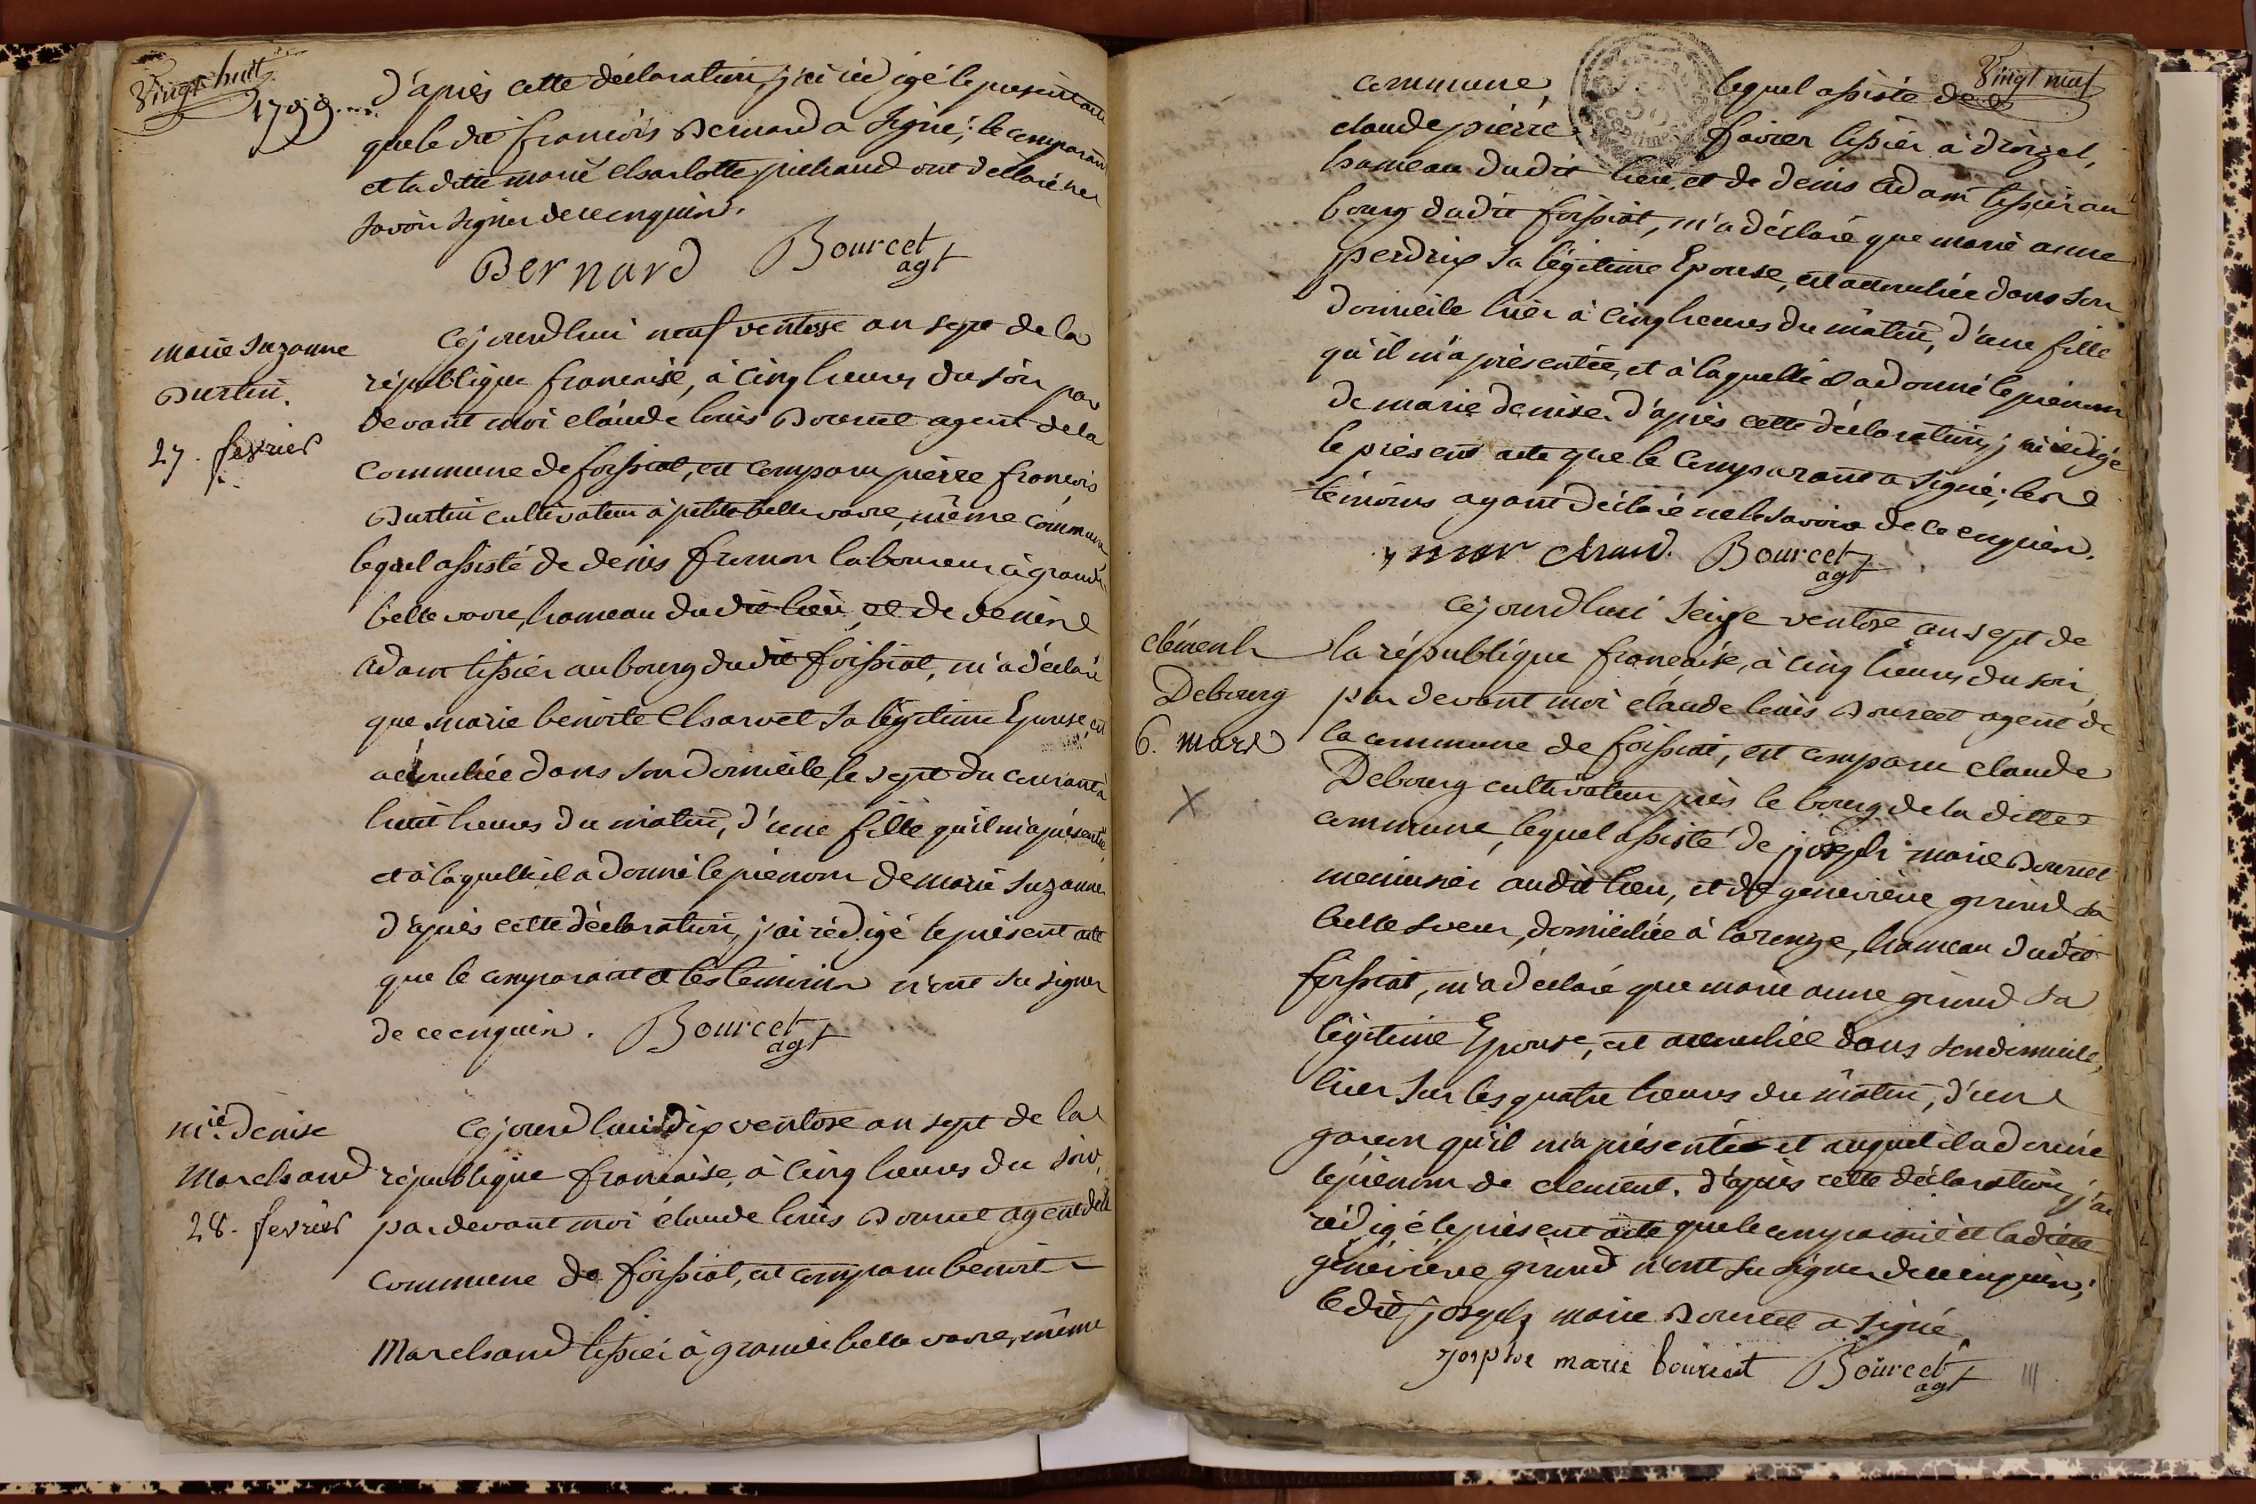 Vingt huit
1799....
d'après cette déclaration, j'ai rédigé le présent acte
que le dit françois Bernard a signé; le comparant
et la ditte marie Charlotte pichaud ont déclaré ne
savoir signer de ce enquis.
Bernard Bourcet
agt
marie suzanne
Durtin.
27. fevrier
Cejourdhui neuf ventose an sept de la
république francaise, à cinq heures du soir par
devant moi claude louis Bourcet agent de la
commune de foissiat, est comparu pierre françois
Durtin cultivateur à petite belle vavre, même commune
lequel assisté de denis fromon laboureur à grande
belle vavre, hameau du dit lieu, et de denis
adam tissier au bourg du dit foissiat, m'a déclaré
que marie benoite Charvet sa légitime Epouse, est
accouchée dans son domicile, le sept du courant à
huit heures du matin, d'une fille qu'il m'a présentée,
et à laquelle il a donné le prénom de marie suzanne
d'après cette déclaration, j'ai rédigé le présent acte
que le comparant et les temoins n'ont su signer
de ce enquis. Bourcet
agt
mie. denise
Marchand
28. fevrier
Cejourdhui dix ventose an sept de la
république francaise, à cinq heures du soir,
pardevant moi claude louis Bourcet agent de la
commune de foissiat, est comparu benoit
Marchand tissier à grande belle vavre, même
Vingt neuf
commune, lequel assisté de
claude pierre favier tissier à
hameau du dit lieu, et de denis adam tissier au
bourg du dit foissiat, m'a déclaré que marie anne
perdrix sa légitime Epouse, est accouchée dans son
domicile hier à cinq heures du matin, d'une fille
qu'il m'a présentée, et à laquelle il a donné le prénom
de marie denise. d'après cette déclaration, j'ai rédigé
le présent acte que le comparant a signé; les
témoins ayant déclaré ne le savoir de ce enquis.
Bourcet
agt
clément
Debourg
6. mars
X
Cejourdhui seize ventose an sept de
la république francaise, à cinq heures du soir,
par devant moi claude louis Bourcet agent de
la commune de foissiat, est comparu claude
Debourg cultivateur près le bourg de la ditte
commune, lequel assisté de joseph marie Bourcet
menuisier au dit lieu, et de geneviève girard sa
belle soeur, domiciliée à lorenze, hameau du dit
foissiat, m'a déclaré que marie anne girard sa
légitime Epouse, est accouchée dans son domicile,
hier sur les quatre heures du matin, d'un
garcon qu'il m'a présenté et auquel il a donné
le prénom de clement. d'après cette déclaration j'ai
rédigé le présent acte que le comparant et la ditte
géneviève girard n'ont su signer de ce enquis;
le dit joseph marie Bourcet a signé.
josphe marie bourcet Bourcet
agt